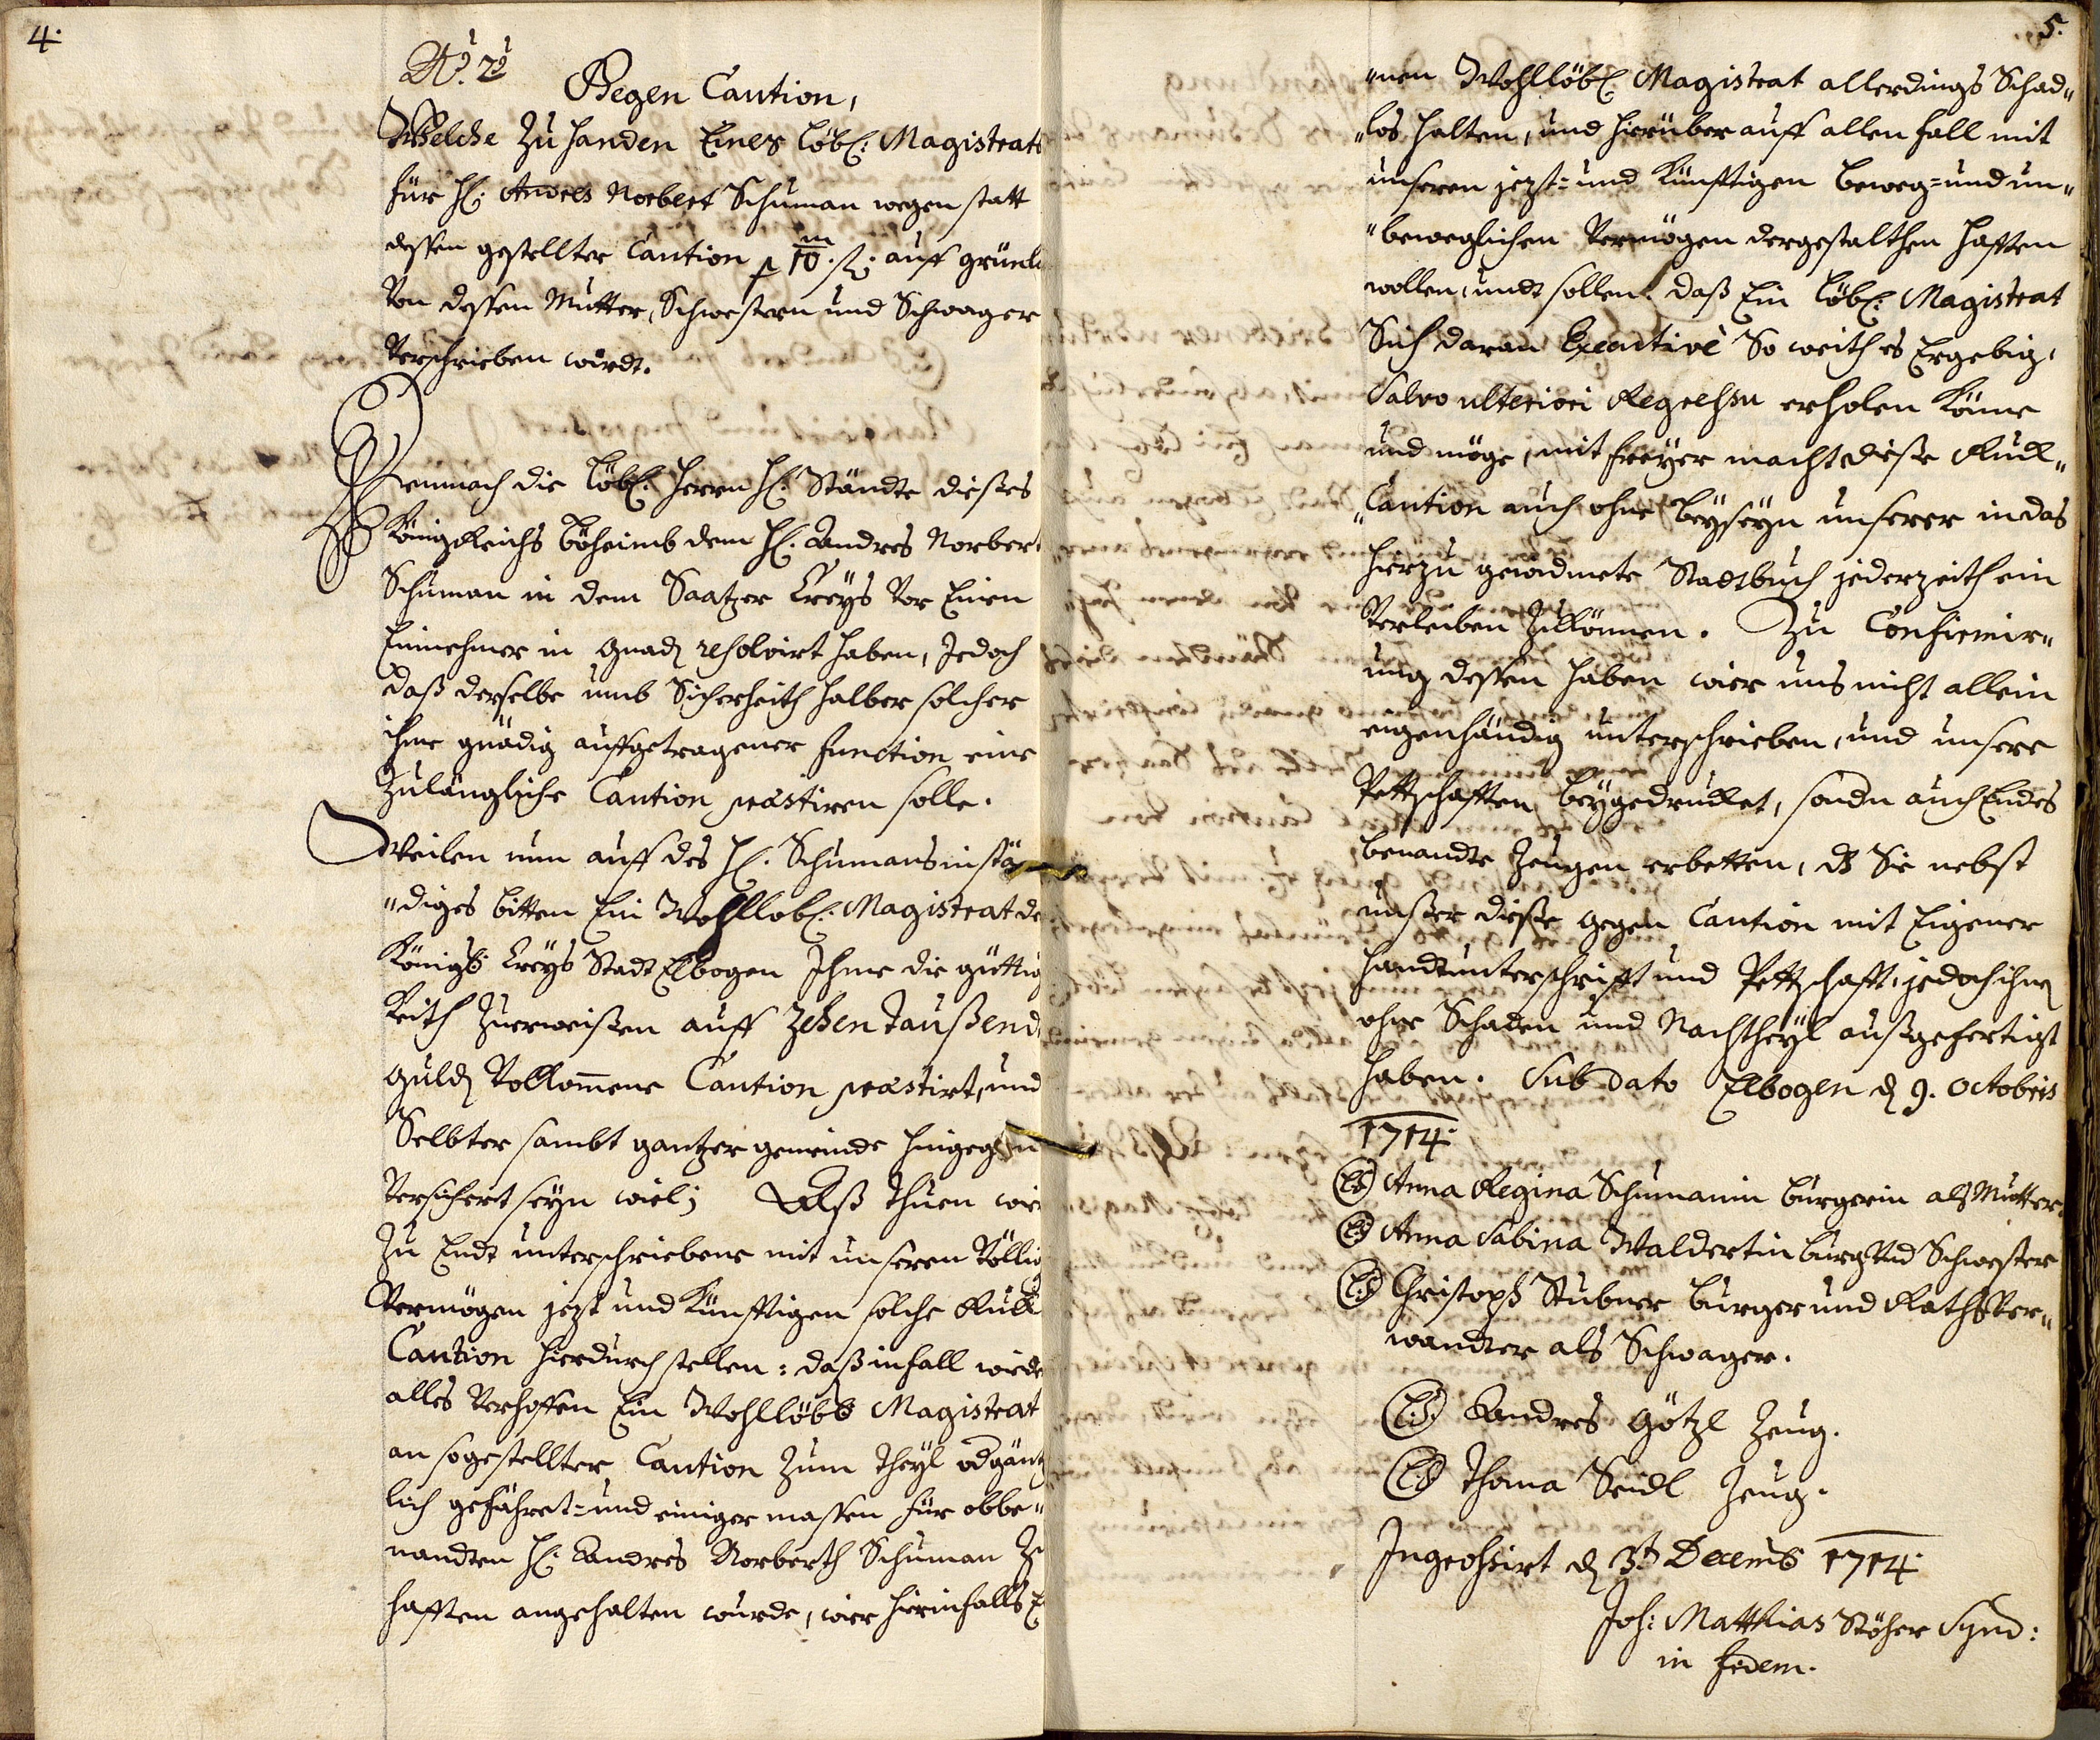 4.
No. 2do
Gegen Caution,
Welche Zu handen Eines Löbl: Magistrats
für H: Andres Norbert Schuman wegen statt
dessen gestellter Caution p 10 m f. auff
Von dessen Mutter, Schwestern und Schwager
Verschrieben wirdt.
Demnach die Löbl: Herrn H: Ständte dießes
Königreichs Böheimb dem H: Andres Norbert
Schuman in dem Saatzer Creÿs Vor Einen
Einnehmer in Gnad resolvirt haben, Jedoch
daß derselbe umb Sicherheith halber solcher
ihme gnädig auffgetragener Function eine
Zulängliche Caution præstiren solle.
Weilen nun auff des H: Schumans instä
"diges bitten Ein Wohllobl: Magistrat de
Königl: Creÿs Stadt Elbogen Ihme die güttig
keith Zuerweißen auff Zehen Taußend
Guld Vollkom̄ene Caution præstirt, und
Selbter sambt gantzer gemeinde hingegen
Versichert seÿn wiel; Alß Thuen wir
Zu Endt unterschriebene mit unseren Völlig
Vermögen jezt und Künfftigen solche Ruck
Caution hierdurch stellen: daß infall wieder
alles Verhoffen Ein Wohllöbl Magistrat
an sogestellter Caution Zum Theÿl od gäntz
lich gefähret= und einiger massen für obbe"
nandten H: Andres Norberth Schuman Zu
hafften angehalten wurde, wier hierinfalls E
5.
"nen Wohllöbl Magistrat allerdings Schad"
"los halten, und hierüber auff allen fall mit
unseren jezt= und Künfftigen beweg= und un"
"beweglichen Vermögen dergestalthen hafften
wollen, undt sollen. daß Ein Löbl: Magistrat
Sich daran Executivè So weith es Ergebig,
Salvo ulteriori Regressu erholen Könne
und möge, mit freÿer macht dieße Ruck"
"Caution auch ohne beÿseÿn unserer in das
hierzu gewidmete Stadtbuch jederzeith ein
Verleiben Zukönnen. Zu Confirmir"
ung dessen haben wier uns nicht allein
eigenhändig unterschrieben, und unsere
Pettschafften beÿgedrucket, sondn auch Endes
benandte Zeugen erbetten, dß Sie nebst
unßer dieße gegen Caution mit Eigener
handtunterschrifft und Pettschafft, jedoch ihn
ohne Schaden und Nachtheÿl außgefertigt
haben. Sub dato Elbogen d 9. Octobris
1714.
(LS) Anna Regina Schumanin burgerin als Mutter.
(LS) Anna Sabina Waldertin burg Vnd Schwester
(LS) Christoph Stubner burger und Raths Ver"
wandter als Schwager.
(L:S:) Andres Götzl Zeug.
(LS) Thoma Seidl Zeug.
Ingrossirt d 3t Decemb 1714.
Joh: Matthias Stöhr Synd:
in fidem.